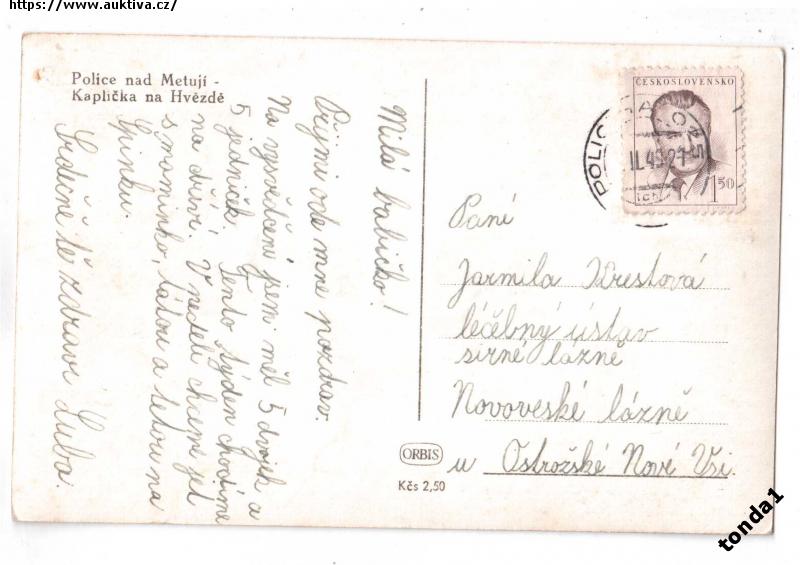 https://www.auktiva.cz/
Police nad Metují -
Kaplička na Hvězdě
Milá babičko!
Přijmi ode mne pozdrav.
Na vysvědčení jsem měl 5 dvojek a
5 jedniček. Tento týden chodíme
na dříví. V neděli chceme jet
s maminkou, tátou a tetou na
Špinku.
Srdečně tě zdraví Luba.
ČESKOSLOVENSKO
1.50
Paní
Jarmila Krestová
léčebný ústav
sirné lázně
Novoveské lázně
u Ostrožské Nové Vsi.
ORBIS
Kčs 2,50
tonda1